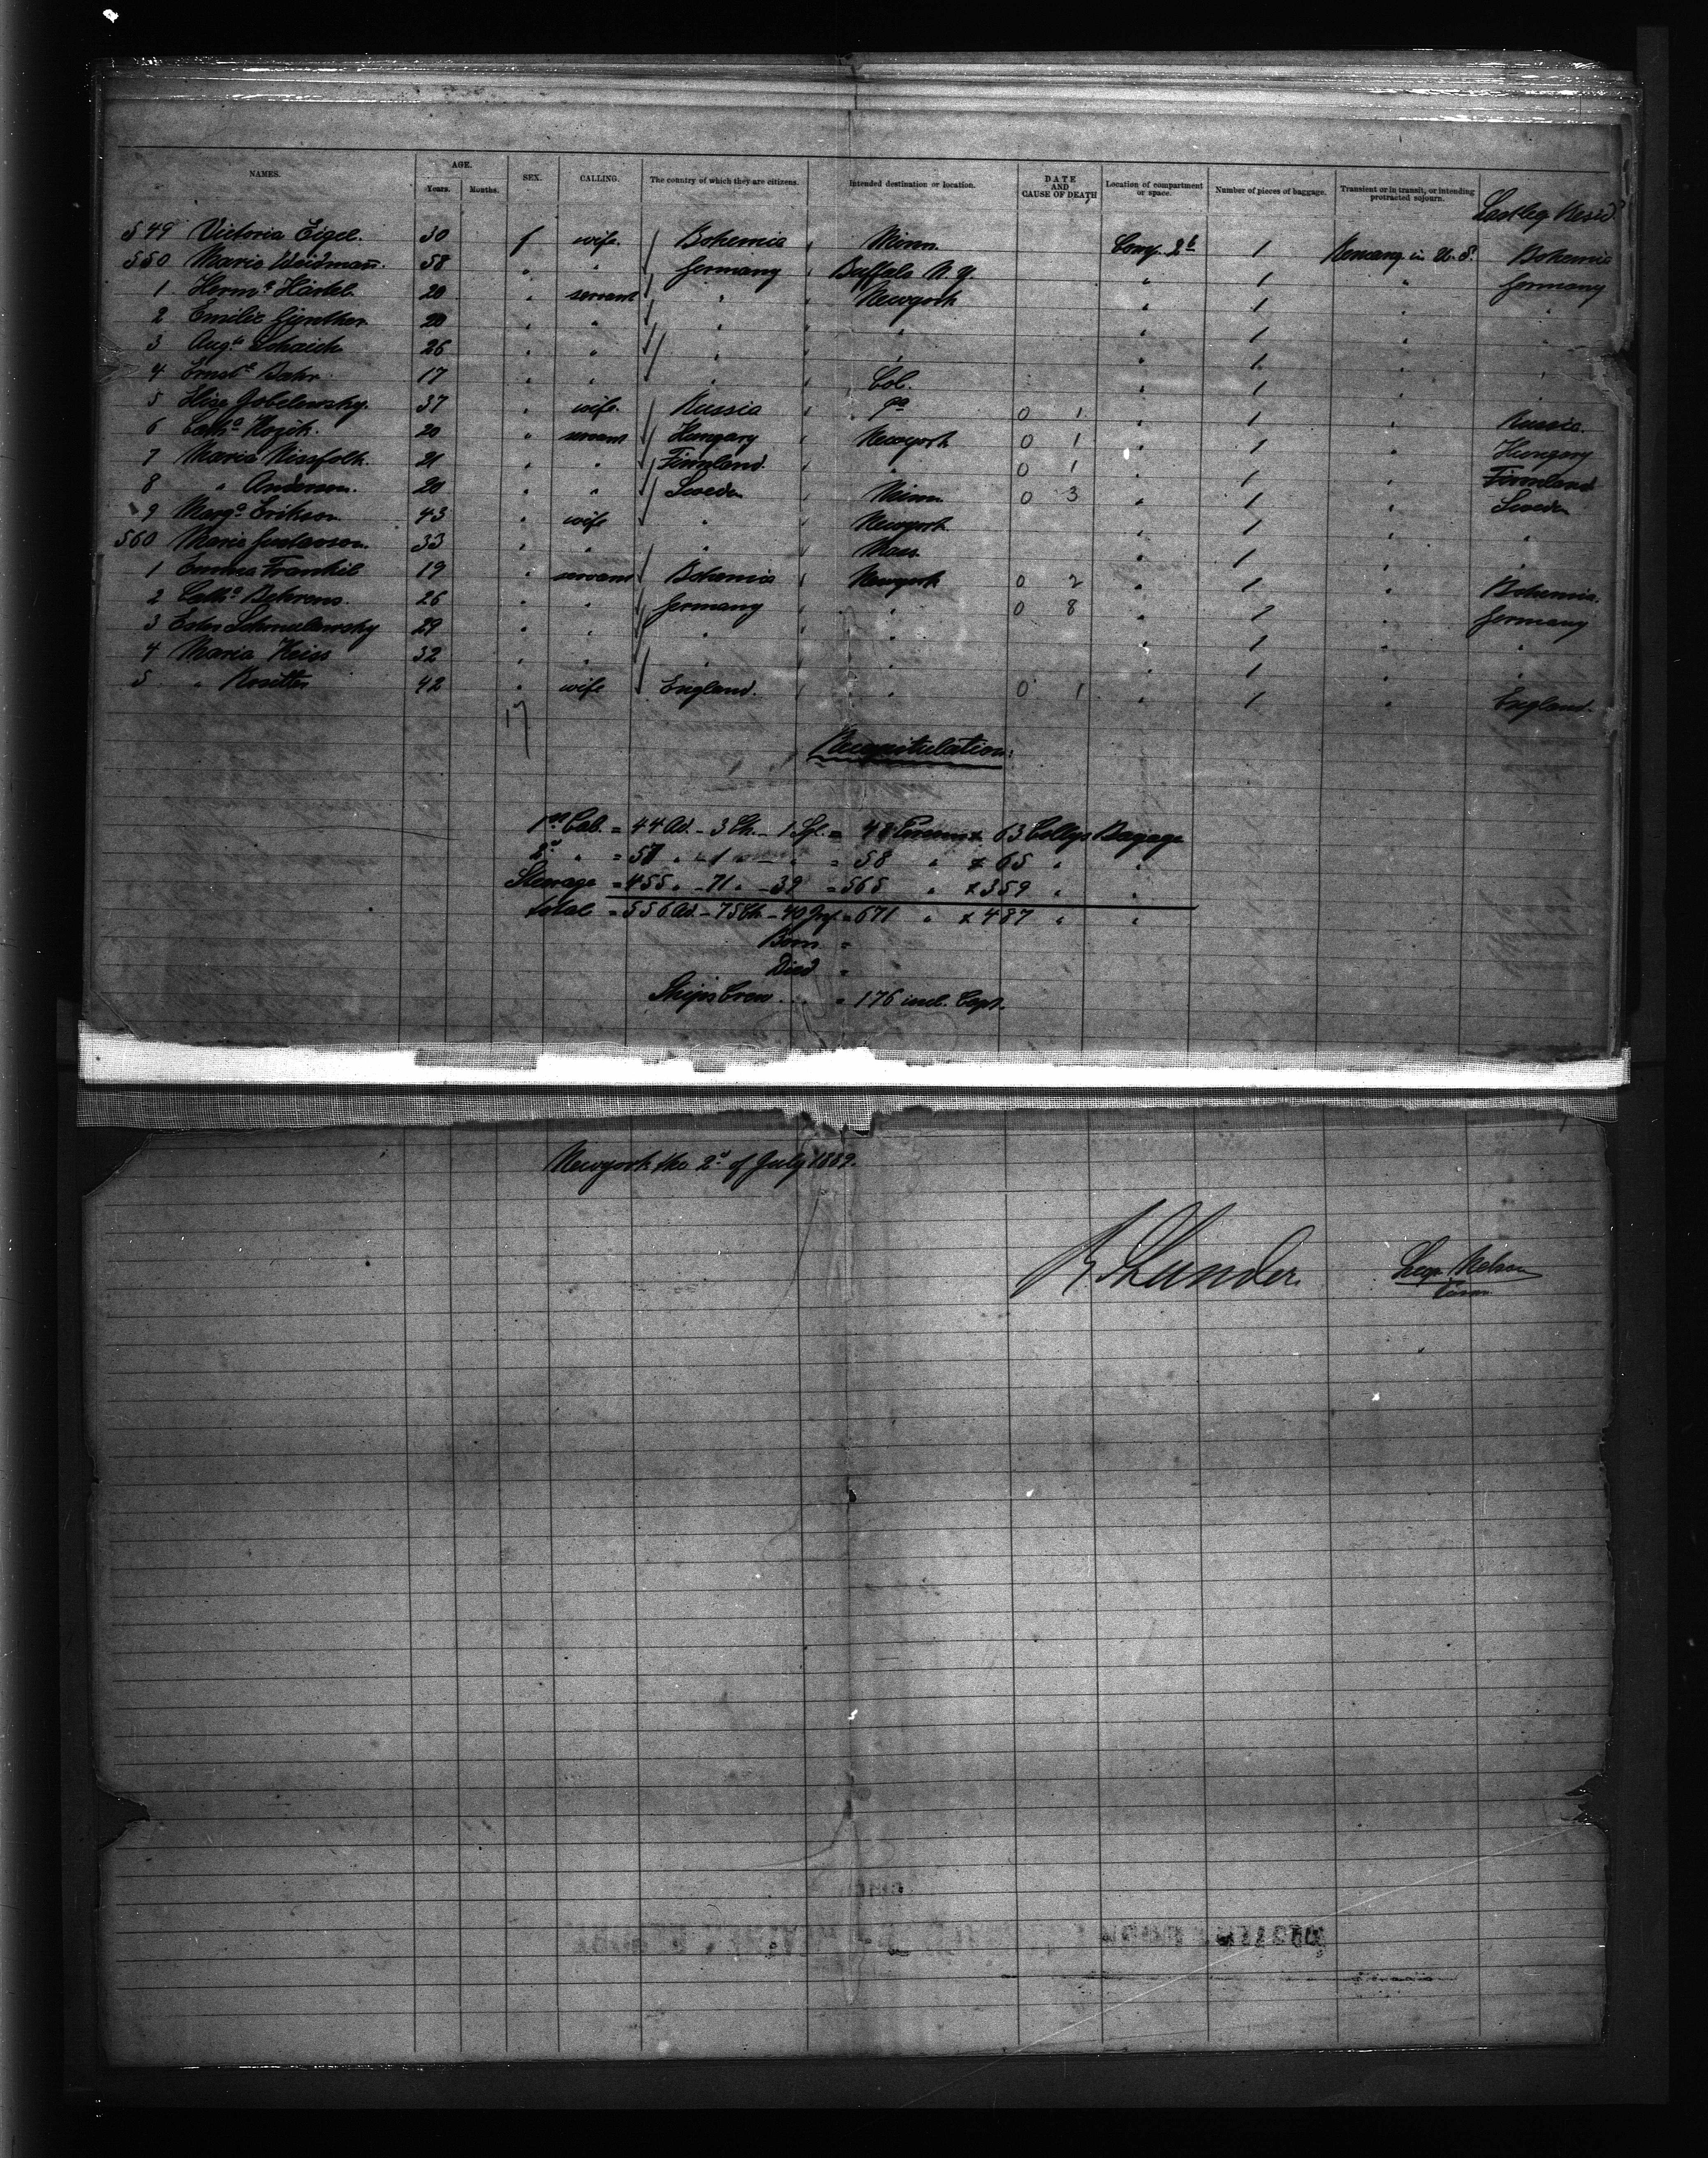 NAMES. AGE. Years. Months. SEX. CALLING. The country of which they are citizens. Intended destination or location. DATE AND CAUSE OF DEATH Location of compartment or space. Number of pieces of baggage. Transient or in transit, or intending protracted sojourn.
549 Victoria Eigel. 30 f wife. Bohemia Minn. Comp. 1 in U. S. Bohemia
550 Marie Weidmañ. 58 " " Germany Buffalo N. Y. " 1 " Germany
1 Hermª Härtel 20 " servant " Newyork " 1 " "
2 Emilie Günther 20 " " " " " 1 " "
3 Augª Schaich 26 " " " " " 1 " "
4 Ernstª Bahr 17 " " " Col. " 1 " "
5 37 " wife. Russia Pa 0 1 " 1 " Russia.
6 Cathª Kozik. 20 " servant Hungary Newyork 0 1 " 1 " Hungary
7 Maria Nissfolk. 21 " " Finnland. " 0 1 " 1 " Finnland
8 " Anderson. 20 " " Sweden Minn 0 3 " 1 " Sweden
9 Margª Erikson 43 " wife " Newyork " 1 " "
560 Marie Gustavson. 33 " " " Mass. " 1 " "
1 Emma Frankil 19 " servant Bohemia Newyork 0 2 " 1 " Bohemia.
2 Cathª Behrens. 26 " " Germany " 0 8 " 1 " Germany
3 Ester Schmulawsky 29 " " " " " 1 " "
4 Maria Heiss 32 " " " " " 1 " "
5 " 42 " wife England. " 0 1 " 1 " England.
17
Recapitulation:
1st Cab. = 44 Ad. - 3 Ch. - 1 = 48 63 Collys Bagage
2d " = 57 " - 1 " = 58 " 65 "
Steerage = 455 " - 71 " - 39 = 565 " 359 " "
total = 556 Ad. - 75 Ch. - 40 Inf. = 671 " 487 " "
Born =
Died =
Ships Crew = 176 incl. Capt.
Newyork the 2d of July 1889.